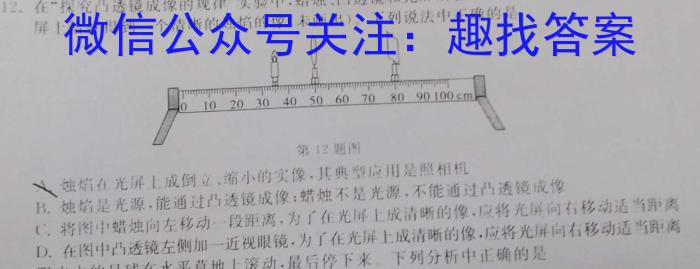 12. 在“探究凸透镜成像的规律”实验中，蜡烛、凸透镜和光屏
屏上 一个清晰的蜡烛的像（未画出） 列说法中正确的是
微信公众号关注：趣找答案
0 10 20 30 40 50 60 70 80 90 100 cm
第12题图
A. 烛焰在光屏上成倒立、缩小的实像，其典型应用是照相机
B. 烛焰是光源，能通过凸透镜成像；蜡烛不是光源，不能通过凸透镜成像
C. 将图中蜡烛向左移动一段距离，为了在光屏上成清晰的像，应将光屏向右移动适当距离
D. 在图中凸透镜左侧加一近视眼镜，为了在光屏上成清晰的像，应将光屏向右移动适当距离
的足球在水平草地上滚动，最后停下来。下列分析中正确的是